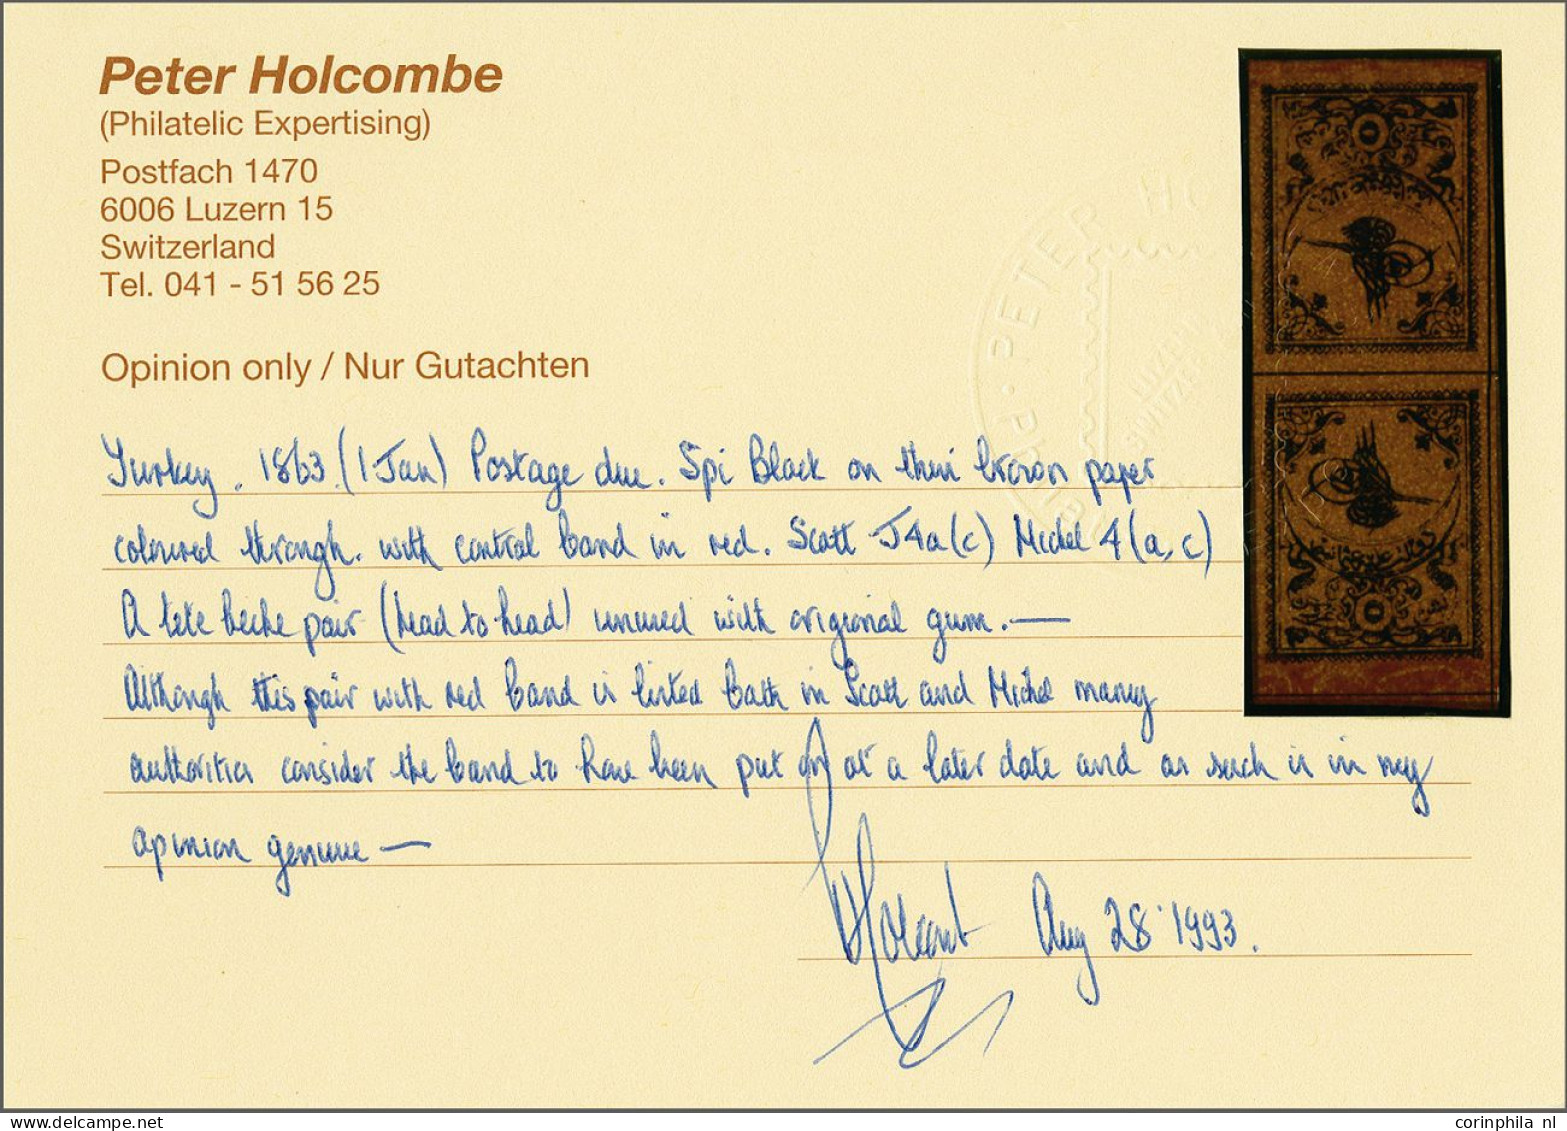 Peter Holcombe
(Philatelic Expertising)
Postfach 1470
6006 Luzern 15
Switzerland
Tel. 041 - 51 56 25
Opinion only / Nur Gutachten
Turkey. 1863 (1 Jan) Postage due. 5pi Black on thin brown paper
coloured through. with control band in red. Scott J4a(c) Michel 4 (a, c)
A tete beche pair (head to head) unused with original gum. —
Although this pair with red band is listed both in Scott and Michel many
authorities consider the band to have been put on at a later date and as such is in my
opinion genuine —
Holcombe Aug 28 1993.
PETER HO
LUZERN
SWITZER
corinphila nl